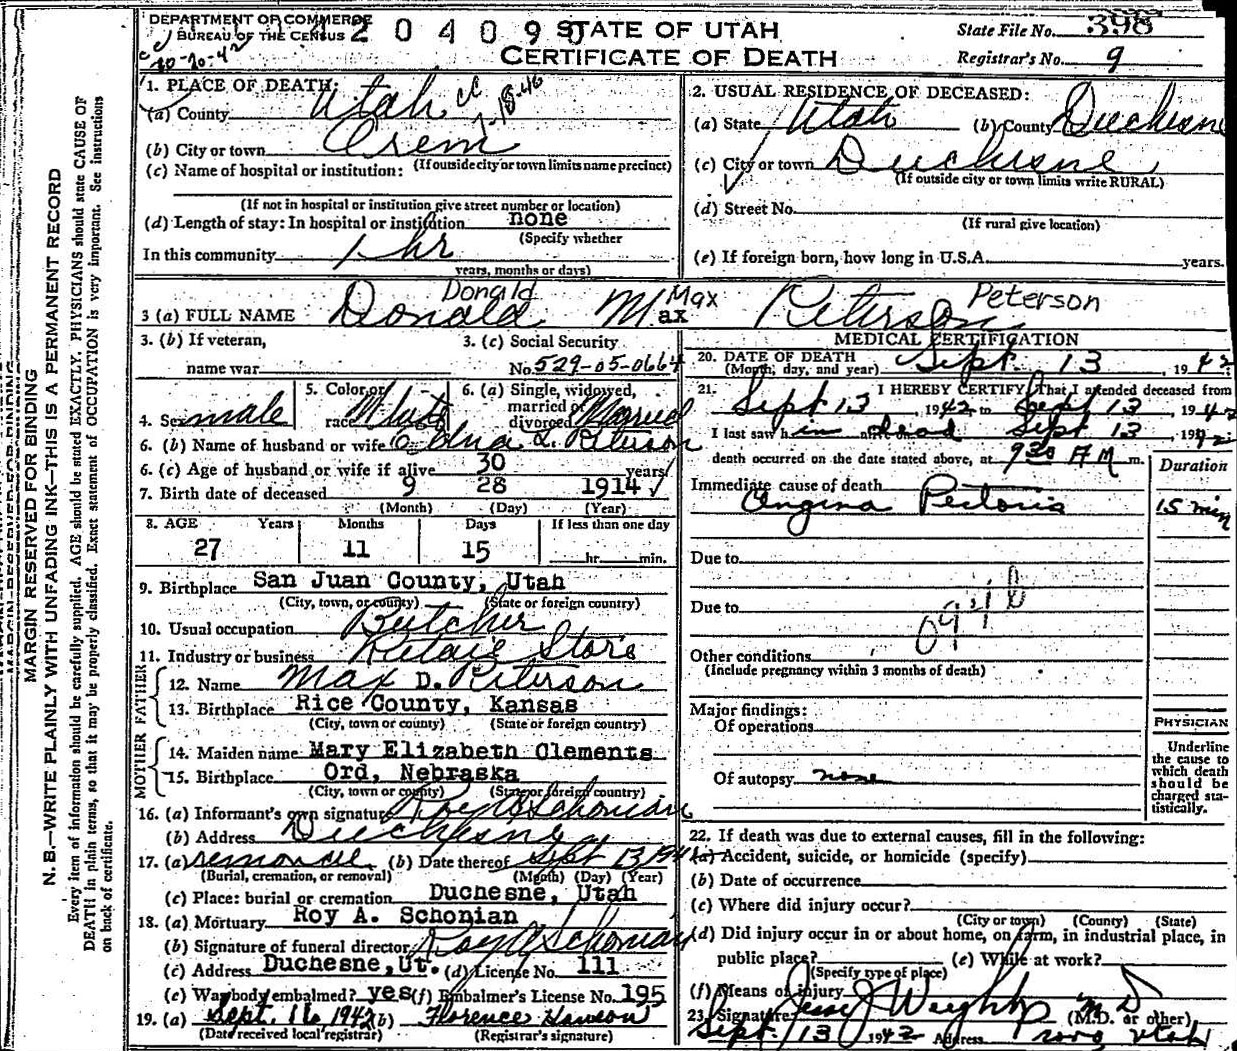 DEPARTMENT OF COMMERCE
BUREAU OF THE CENSUS
2 0 4 0 9 0
STATE OF UTAH
CERTIFICATE OF DEATH
State File No. 398
Registrar's No. 9
10-20-42
MARGIN RESERVED FOR BINDING
N. B.—WRITE PLAINLY WITH UNFADING INK—THIS IS A PERMANENT RECORD
Every item of information should be carefully supplied. AGE should be stated EXACTLY. PHYSICIANS should state CAUSE OF
DEATH in plain terms, so that it may be properly classified. Exact statement of OCCUPATION is very important. See instructions
on back of certificate.
1. PLACE OF DEATH:
(a) County Utah cc 1-18-46
(b) City or town Orem
(If outside city or town limits name precinct)
(c) Name of hospital or institution:
(If not in hospital or institution give street number or location)
(d) Length of stay: In hospital or institution none
(Specify whether
In this community 1 hr
years, months or days)
2. USUAL RESIDENCE OF DECEASED:
(a) State Utah (b) County Duchesne
(c) City or town Duchesne
(If outside city or town limits write RURAL)
(d) Street No.
(If rural give location)
(e) If foreign born, how long in U.S.A. years.
Donald Max Peterson
3 (a) FULL NAME Donald Max Peterson
3. (b) If veteran,
name war
3. (c) Social Security
No. 529-05-0664
4. Sex male
5. Color or
race White
6. (a) Single, widowed,
married or
divorced Married
6. (b) Name of husband or wife Edna L. Peterson
6. (c) Age of husband or wife if alive 30 years
7. Birth date of deceased 9 28 1914
(Month) (Day) (Year)
8. AGE Years Months Days If less than one day
27 11 15 hr. min.
9. Birthplace San Juan County, Utah
(City, town, or county) (State or foreign country)
10. Usual occupation Butcher
11. Industry or business Retail Store
FATHER
12. Name Max D. Peterson
13. Birthplace Rice County, Kansas
(City, town or county) (State or foreign country)
MOTHER
14. Maiden name Mary Elizabeth Clements
15. Birthplace Ord, Nebraska
(City, town or county) (State or foreign country)
16. (a) Informant's own signature Roy A Schonian
(b) Address Duchesne
17. (a) removal (b) Date thereof Sept 13 1942
(Burial, cremation, or removal) (Month) (Day) (Year)
(c) Place: burial or cremation Duchesne, Utah
18. (a) Mortuary Roy A. Schonian
(b) Signature of funeral director Roy A Schonian
(c) Address Duchesne, Ut. (d) License No. 111
(e) Was body embalmed? yes (f) Embalmer's License No. 195
19. (a) Sept. 16 1942 (b) Florence
(Date received local registrar) (Registrar's signature)
MEDICAL CERTIFICATION
20. DATE OF DEATH Sept. 13, 1942
(Month, day, and year)
21. I HEREBY CERTIFY That I attended deceased from
Sept 13, 1942 to Sept 13, 1942
I last saw him alive on dead Sept 13 1942
death occurred on the date stated above, at 9 30 A M m.
Duration
Immediate cause of death
Angina Pectoris 15 min
Due to
Due to
094b
Other conditions
(Include pregnancy within 3 months of death)
Major findings:
Of operations
Of autopsy none
PHYSICIAN
Underline
the cause to
which death
should be
charged sta-
tistically.
22. If death was due to external causes, fill in the following:
(a) Accident, suicide, or homicide (specify)
(b) Date of occurrence
(c) Where did injury occur?
(City or town) (County) (State)
(d) Did injury occur in or about home, on farm, in industrial place, in
public place? (e) While at work?
(Specify type of place)
(f) Means of injury
23. Signature Jesse J Weight M D
(M.D. or other)
Sept. 13 1942 Address Provo Utah